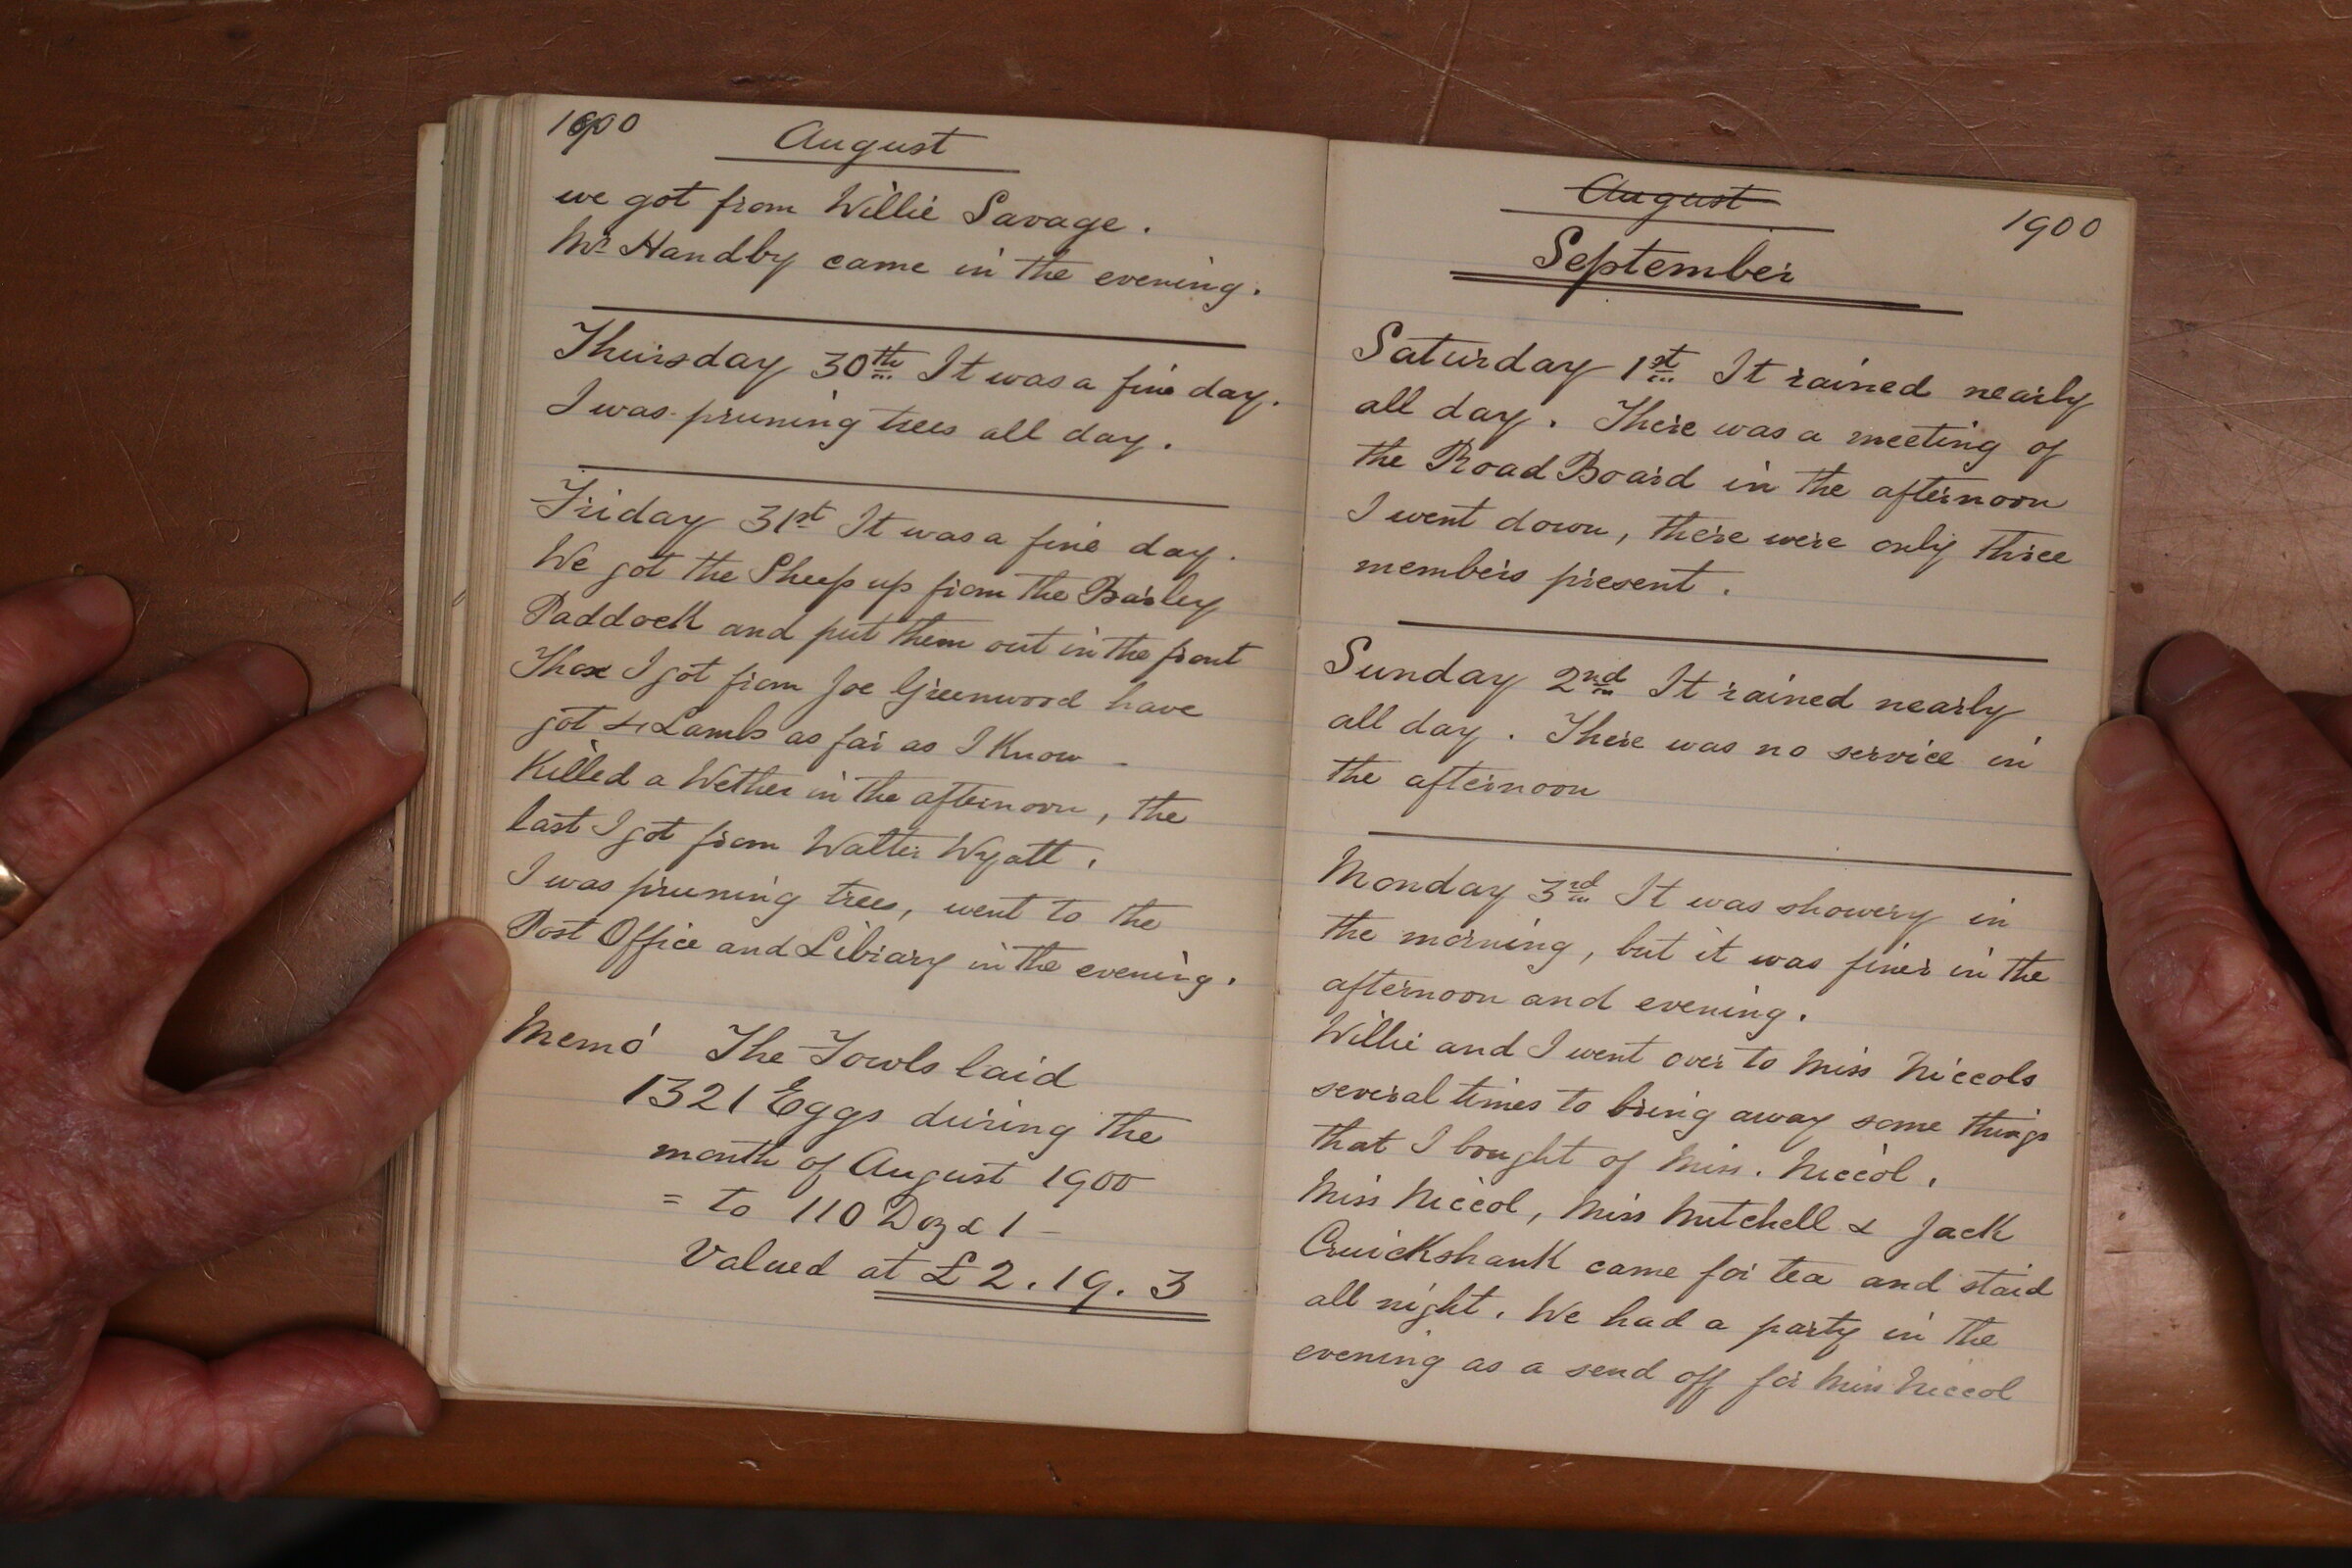 1900
August
we got from Willie Savage.
Mr Handby came in the evening.
Thursday 30th It was a fine day.
I was pruning trees all day.
Friday 31st It was a fine day.
We got the Sheep up from the Barley
Paddock and put them out in the front
Those I got from Joe Greenwood have
got 4 Lambs as far as I Know -
Killed a Wether in the afternoon, the
last I got from Walter Wyatt.
I was pruning trees, went to the
Post Office and Library in the evening.
Memo The Fowls laid
1321 Eggs during the
month of August 1900
= to 110 Doz & 1 -
Valued at £2.19.3
August
1900
September
Saturday 1st It rained nearly
all day. There was a meeting of
the Road Board in the afternoon
I went down, there were only three
members present.
Sunday 2nd It rained nearly
all day. There was no service in
the afternoon
Monday 3rd It was showery in
the morning, but it was finer in the
afternoon and evening.
Willie and I went over to Miss Niccols
several times to bring away some things
that I bought of Miss. Niccol.
Miss Niccol, Miss Mitchell & Jack
Cruickshank came for tea and staid
all night. We had a party in the
evening as a send off for Miss Niccol